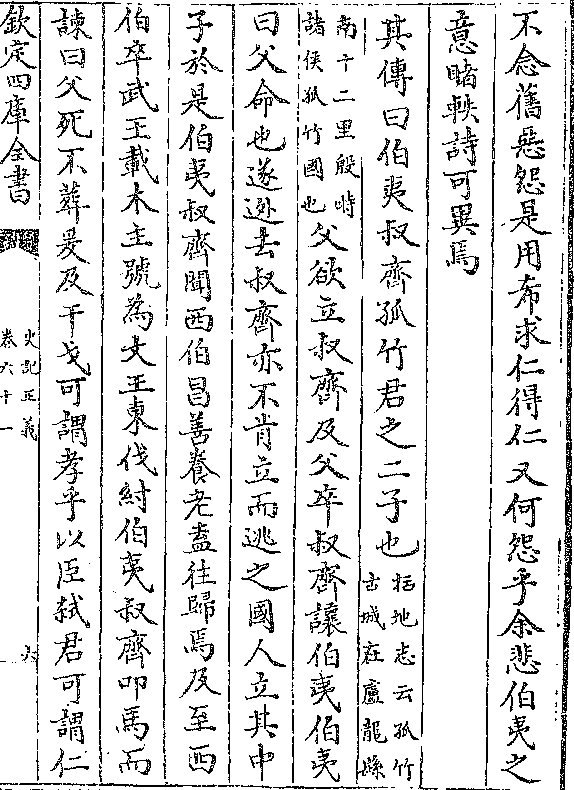 不念舊惡怨是用希求仁得仁又何怨乎余悲伯夷之
意睹軼詩可異焉
其傳曰伯夷叔齊孤竹君之二子也括地志云孤竹
古城在盧龍縣
南十二里殷時
諸侯孤竹國也父欲立叔齊及父卒叔齊讓伯夷伯夷
曰父命也遂逃去叔齊亦不肯立而逃之國人立其中
子於是伯夷叔齊聞西伯昌善養老盍往歸焉及至西
伯卒武王載木主號為文王東伐紂伯夷叔齊叩馬而
諫曰父死不葬爰及干戈可謂孝乎以臣弒君可謂仁
欽定四庫全書
史記正義
卷六十一
六